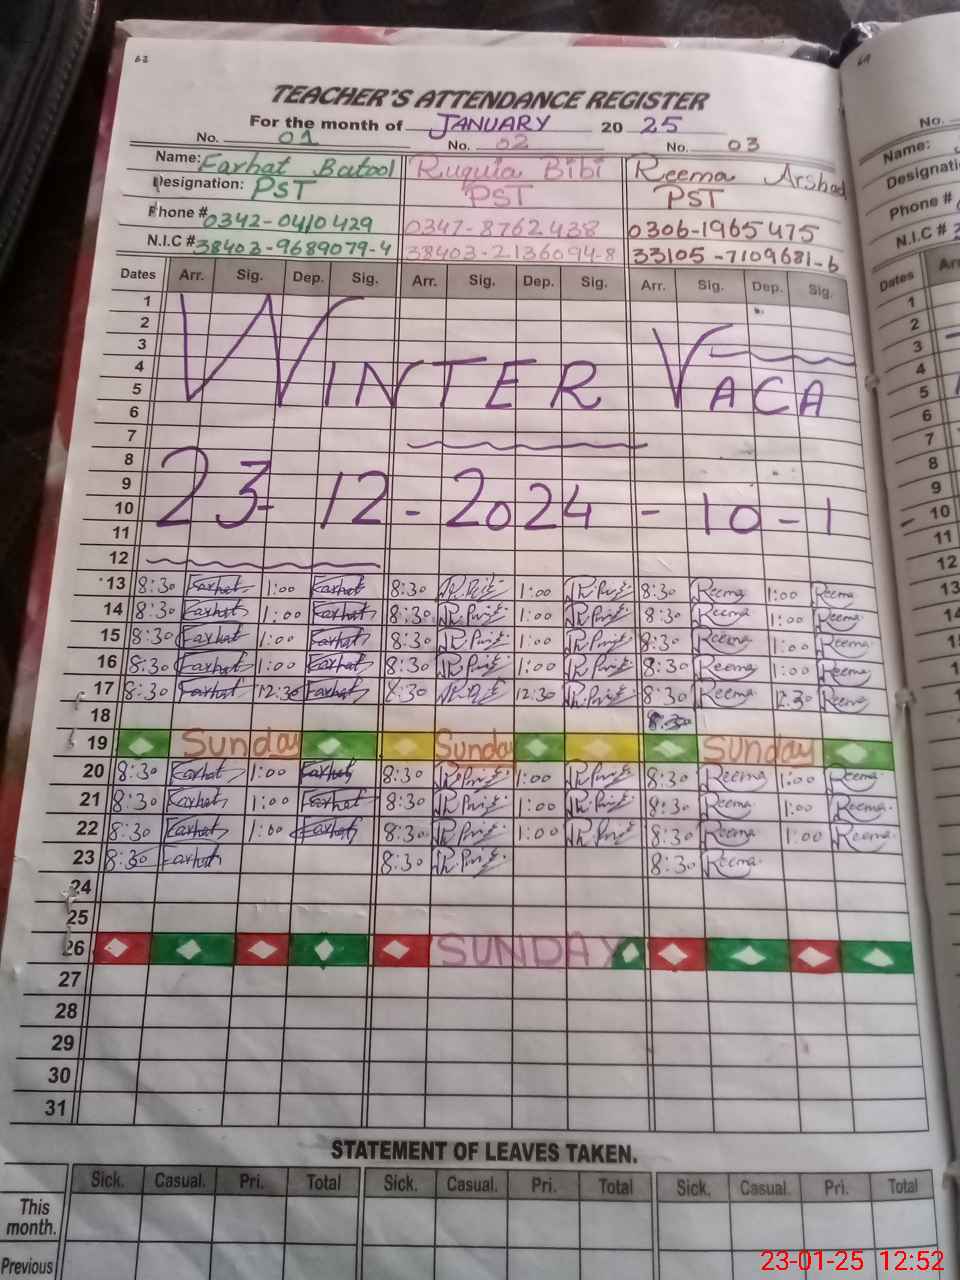 63
TEACHER'S ATTENDANCE REGISTER
For the month of JANUARY 20 25
No. 01 No. 02 No. 03
Name: Farhat Batool Ruquia Bibi Reema Arshad
Designation: PST PST PST
Phone # 0342-0410429 0347-8762438 0306-1965475
N.I.C # 38403-9689079-4 38403-2136094-8 33105-7109681-6
Dates Arr. Sig. Dep. Sig. Arr. Sig. Dep. Sig. Arr. Sig. Dep. Sig.
1
2
3
4 WINTER VACA
5
6
7
8
9
10 23-12-2024-10-1
11
12
13 8:30 Farhat 1:00 Farhat 8:30 1:00 8:30 Reema 1:00 Reema
14 8:30 Farhat 1:00 Farhat 8:30 1:00 8:30 Reema 1:00 Reema
15 8:30 Farhat 1:00 Farhat 8:30 1:00 8:30 Reema 1:00 Reema
16 8:30 Farhat 1:00 Farhat 8:30 1:00 8:30 Reema 1:00 Reema
17 8:30 Farhat 12:30 Farhat 8:30 12:30 8:30 Reema 12:30 Reema
18
19 Sunday Sunday Sunday
20 8:30 Farhat 1:00 Farhat 8:30 1:00 8:30 Reema 1:00 Reema
21 8:30 Farhat 1:00 Farhat 8:30 1:00 8:30 Reema 1:00 Reema
22 8:30 Farhat 1:00 Farhat 8:30 1:00 8:30 Reema 1:00 Reema
23 8:30 Farhat 8:30 8:30 Reema
24
25
26 SUNDAY
27
28
29
30
31
STATEMENT OF LEAVES TAKEN.
Sick. Casual. Pri. Total Sick. Casual. Pri. Total Sick. Casual. Pri. Total
This month.
Previous
64
No.
Name:
Designati
Phone #
N.I.C #
Dates Arr
1
2
3
4
5
6
7
8
9
10
11
12
13
14
15
23-01-25 12:52